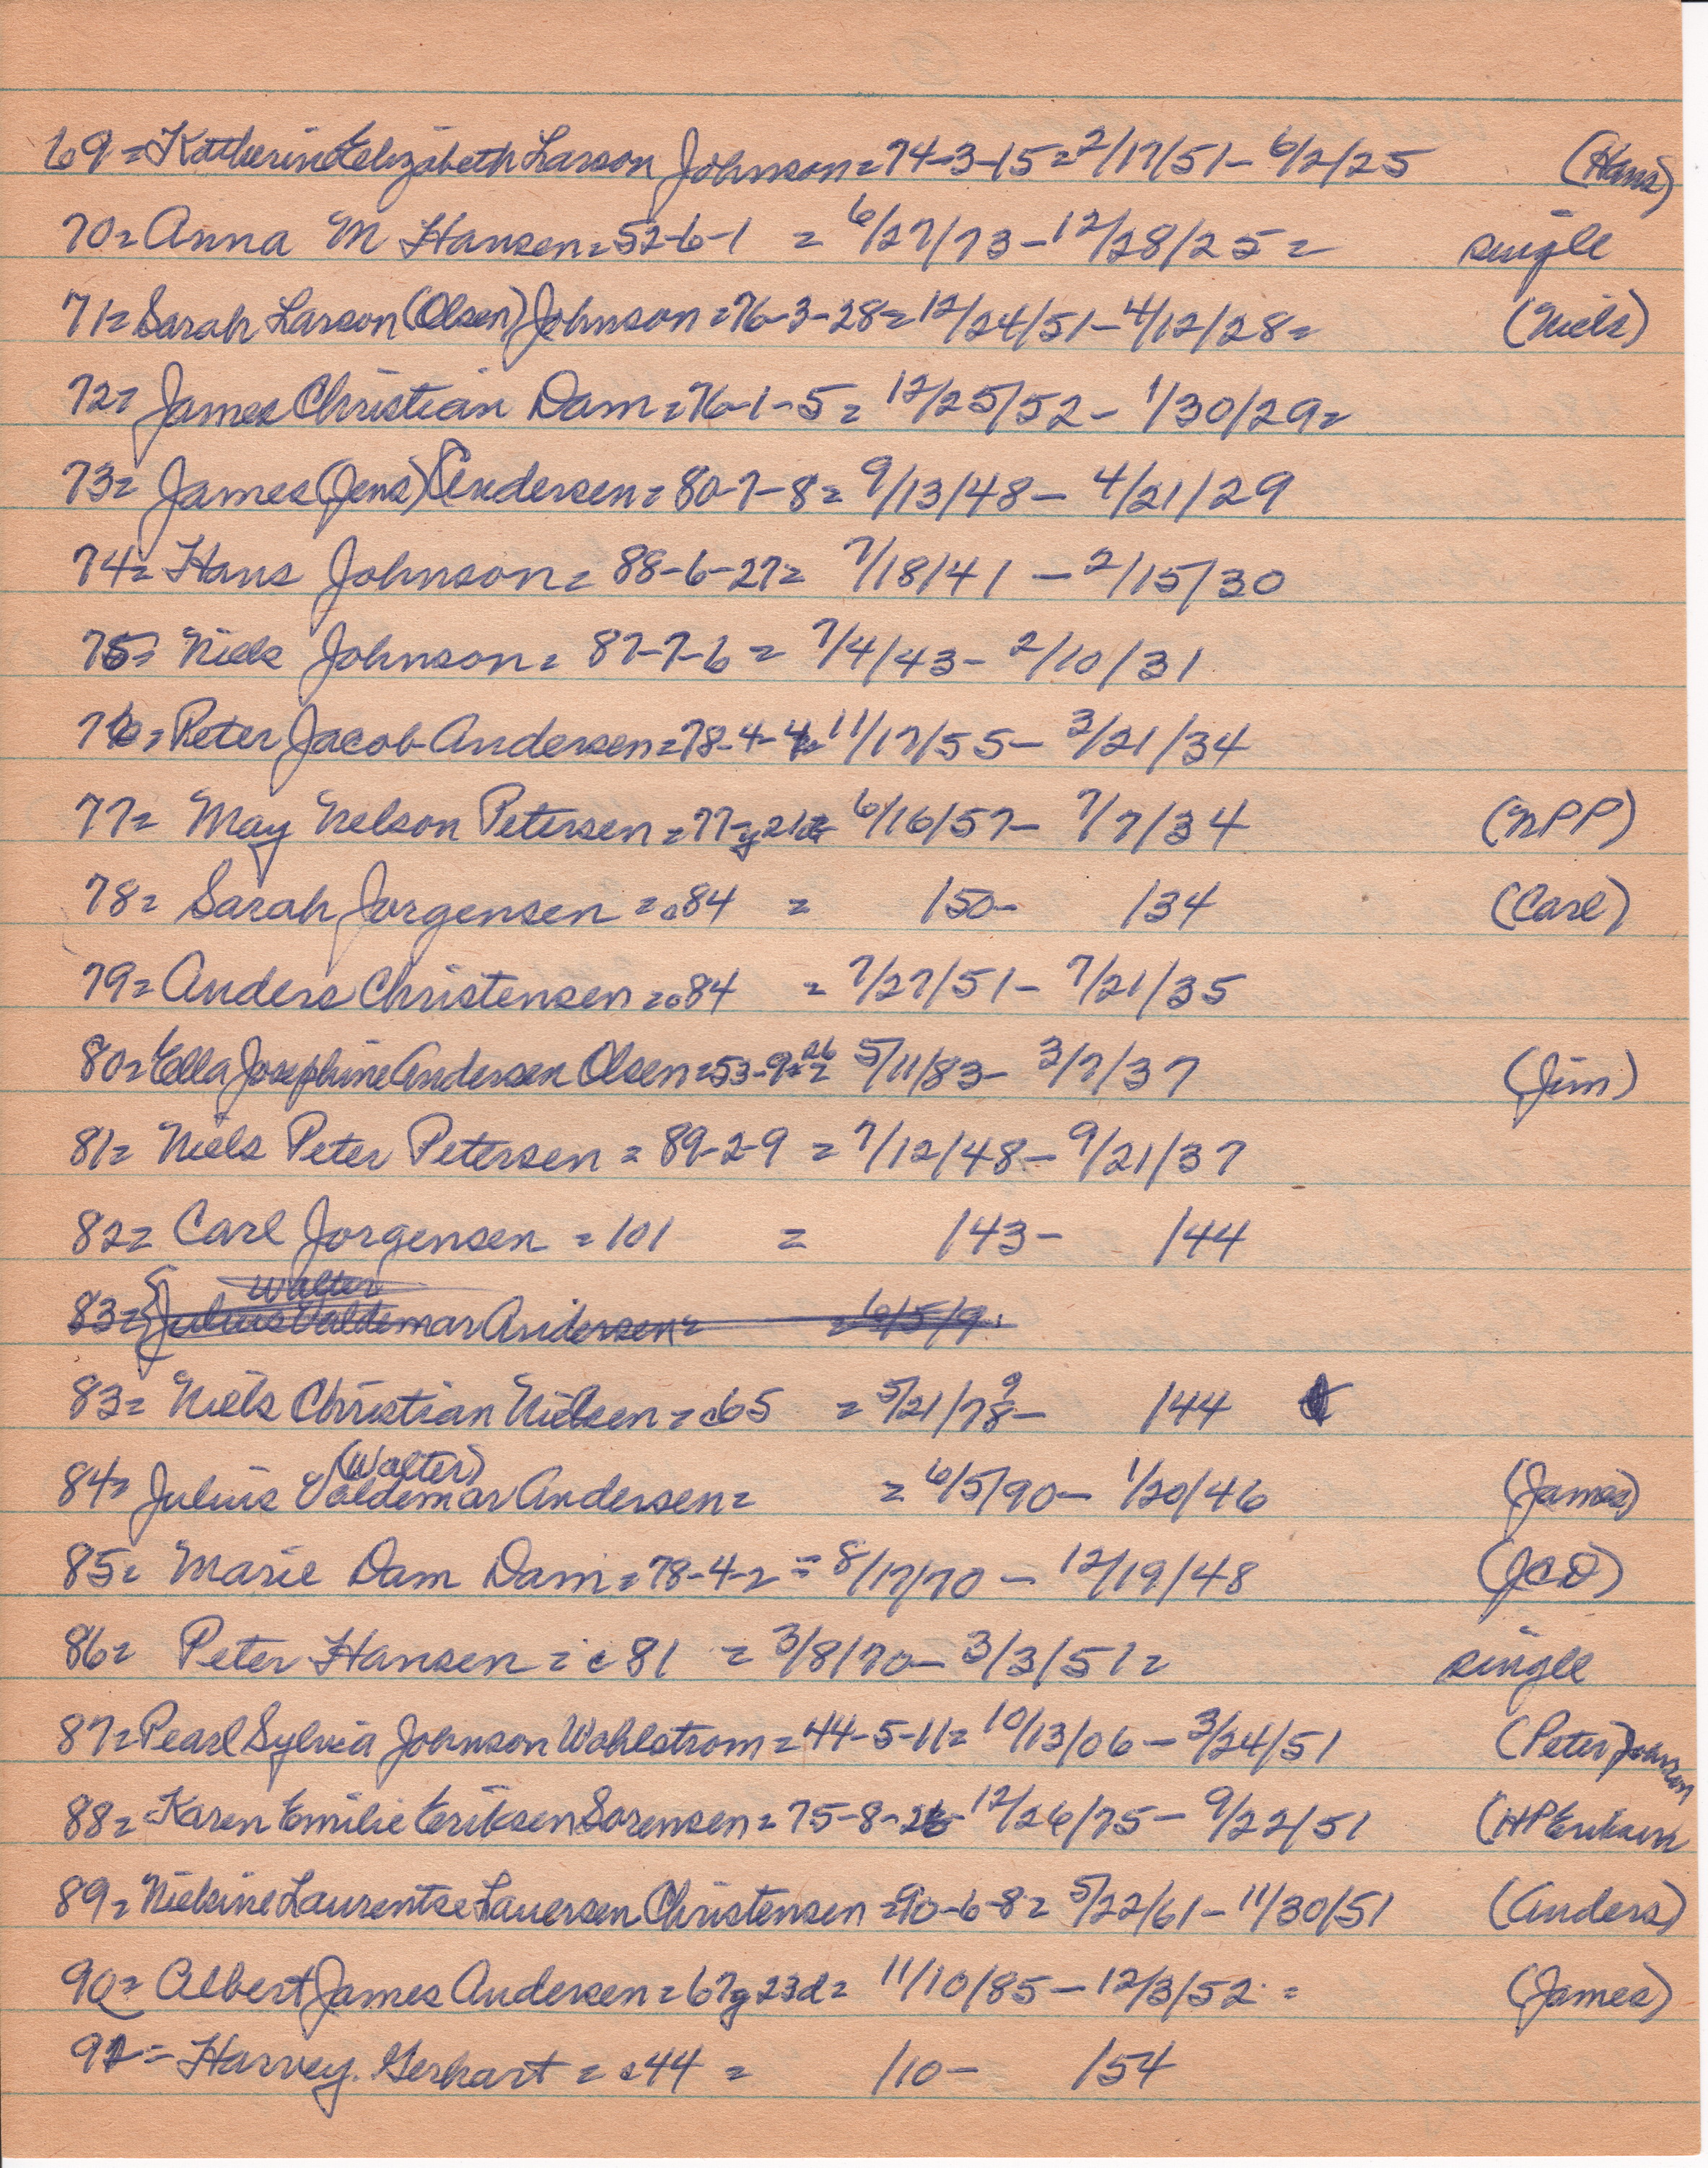 69=Katherine Elizabeth Larson Johnson=74-3-15=2/17/51-6/2/25 (Hans)
70=Anna M Hansen=52-6-1 = 6/27/73-12/28/25= single
71=Sarah Larson(Olsen)Johnson=76-3-28=12/24/51-4/12/28= (Niels)
72=James Christian Dam=76-1-5=12/25/52-1/30/29=
73=James(Jens)Andersen=80-7-8=9/13/48-4/21/29
74=Hans Johnson=88-6-27=7/18/41-2/15/30
75=Niels Johnson=87-7-6=7/4/43-2/10/31
76=Peter Jacob Andersen=78-4-4=11/17/55-3/21/34
77=May Nelson Petersen=77y21d=6/16/57-7/7/34 (NPP)
78=Sarah Jorgensen=c84 = /50- /34 (Carl)
79=Anders Christensen=c84 =7/27/51-7/21/35
80=Ella Josephine Andersen Olsen=53-9-26=5/11/83-3/7/37 (Jim)
81=Niels Peter Petersen=89-2-9=7/12/48-9/21/37
82=Carl Jorgensen=101 = /43- /44
Walter
83={Julius Valdemar Andersen= =6/5/9
83=Niels Christian Nielsen=c65 =5/21/78- /44
9
(Walter)
84=Julius Valdemar Andersen= =6/5/90-1/20/46 (James)
85=Marie Dam Dam=78-4-2=8/17/70-12/19/48 (JCD)
86=Peter Hansen=c81 =3/8/70-3/3/51= single
87=Pearl Sylvia Johnson Wahlstrom=44-5-11=10/13/06-3/24/51 (Peter)Johnson
88=Karen Emilie Eriksen Sorensen=75-8-26-12/26/75-9/22/51 (HPEriksen
89=Nielsine Laurentse Lauersen Christensen=90-6-8=5/22/61-11/30/51 (Anders)
90=Albert James Andersen=67y23d=11/10/85-12/3/52= (James)
91=Harvey Gerhart=c44= /10- /54